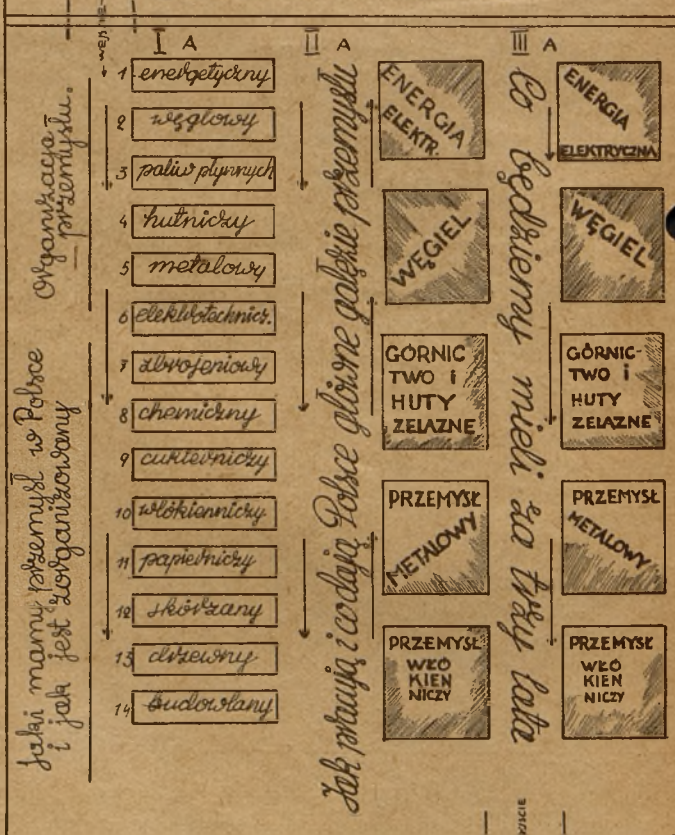 Jaki mamy przemysł w Polsce
i jak jest zorganizowany
Organizacja
przemysłu.
I A
1 energetyczny
2 węglowy
3 paliw płynnych
4 hutniczy
5 metalowy
6 elektrotechnicz.
7 zbrojeniowy
8 chemiczny
9 cukierniczy
10 włókienniczy
11 papierniczy
12 skórzany
13 drzewny
14 budowlany
II A
Jak pracują i co dają Polsce główne gałęzie przemysłu
ENERGIA
ELEKTR.
WĘGIEL
GÓRNIC
TWO i
HUTY
ZELAZNE
PRZEMYSŁ
METALOWY
PRZEMYSŁ
WŁÓ
KIEN
NICZY
III A
Co będziemy mieli za trzy lata
ENERGIA
ELEKTRYCZNA
WĘGIEL
GÓRNIC-
TWO i
HUTY
ZELAZNE
PRZEMYSŁ
METALOWY
PRZEMYSŁ
WŁÓ
KIEN
NICZY